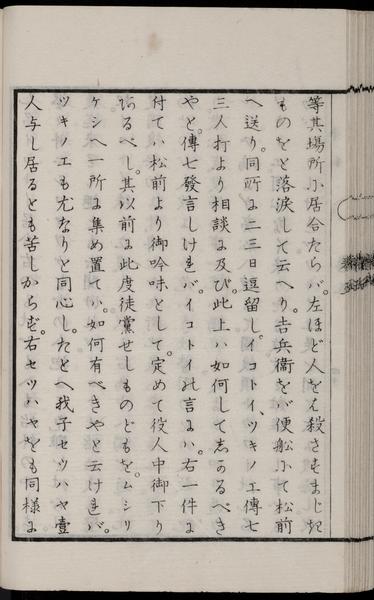 等其場所ニ居合たらバ。左ほど人をも殺さすまじき
ものをと落涙して云へり。吉兵衛をバ便船ニて松前
へ送り。同所に二三日逗留し。イコトイ、ツキノエ傳七
三人打より相談に及び。此上ハ如何して志かるべき
やと。傳七發言しけれバ。イコトイの言にハ。右一件に
付てハ松前より御吟味として。定めて役人中御下り
あるべし。其以前に此度徒黨せしものどもを。ムシリ
ケシへ一所に集め置てハ。如何有べきやと云けれバ。
ツキノエも尤なりと同心し。たとへ我子セツハヤ壹
人与し居るとも苦しからず。右セツハヤをも同様に